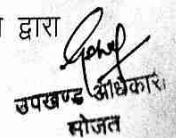 द्वारा
उपखण्ड अधिकारी
सोजत